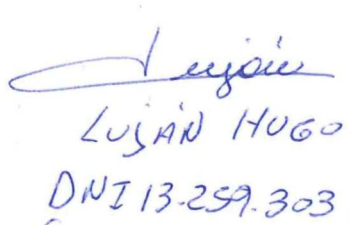 Luján
LUJÁN HUGO
DNI 13-259-303